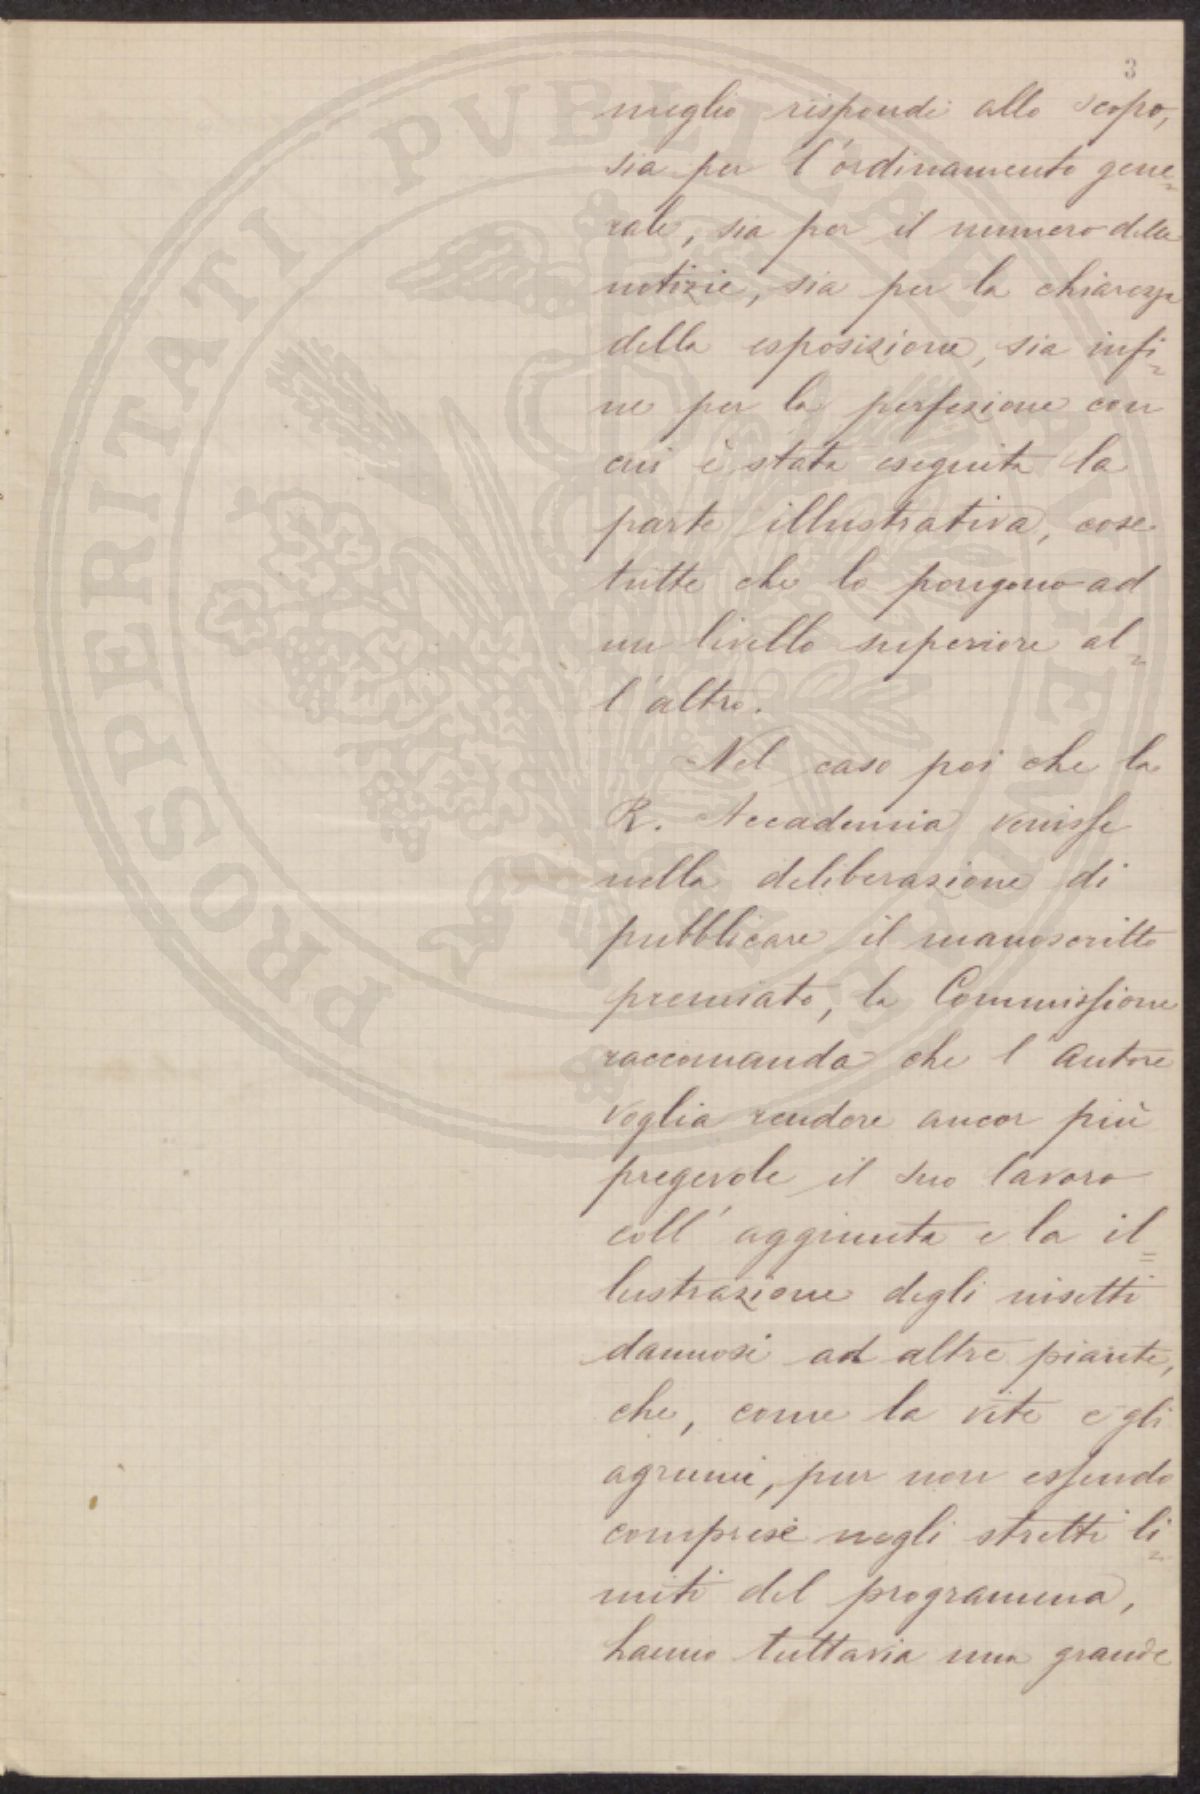 3
meglio rispondi allo scopo,
sia per l'ordinamento gene=
rale, sia per il numero delle
notizie, sia per la chiarezza
della esposizione, sia infi=
ne per la perfezione con
cui è stata eseguita la
parte illustrativa, cose
tutte che lo pongono ad
un livello superiore al=
l'altro.
Nel caso poi che la
R. Accademia venisse
nella deliberazione di
pubblicare il manoscritto
premiato, la Commissione
raccomanda che l'Autore
voglia rendere ancor più
pregevole il suo lavoro
coll'aggiunta e la il=
lustrazione degli insetti
dannosi ad altre piante,
che, come la vite e gli
agrumi, pur non essendo
comprese negli stretti li=
miti del programma,
hanno tuttavia una grande
PROSPERITATI PVBLICAE AVGENDAE